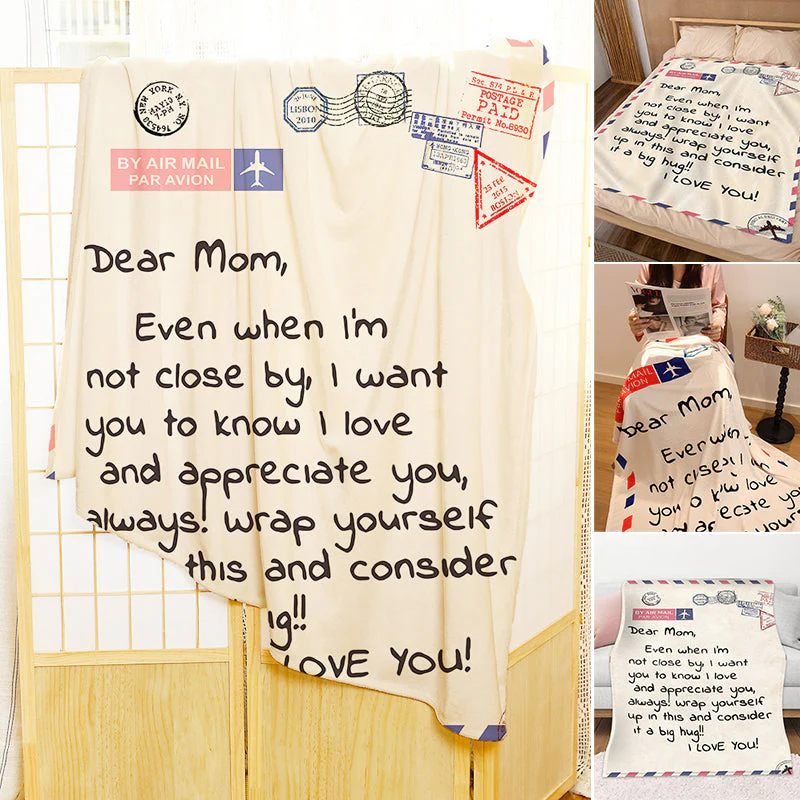 NEW YORK N.Y.
MAY 13
LISBON
2010
Sec. 874 P. L. & R.
POSTAGE
PAID
Permit No.6930
BY AIR MAIL
PAR AVION
HONG KONG
23 FEB
2015
BOSTON
Dear Mom,
Even when I'm
not close by, I want
you to know I love
and appreciate you,
always! wrap yourself
this and consider
ig!!
LOVE YOU!
BY AIR MAIL
Dear Mom,
Even when I'm
not close by, I want
you to know I love
and appreciate you,
always! wrap yourself
up in this and consider
it a big hug!!
I LOVE YOU!
MAIL
Dear Mom,
Even when
not close
you
know I love
BY AIR MAIL
PAR AVION
Dear Mom,
Even when I'm
not close by, I want
you to know I love
and appreciate you,
always! wrap yourself
up in this and consider
it a big hug!!
I LOVE YOU!